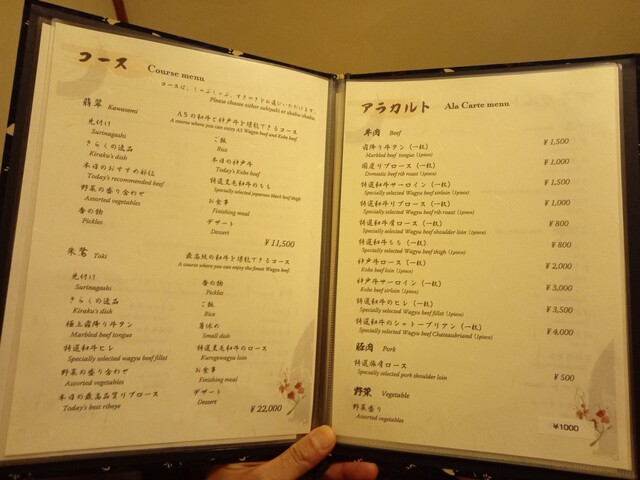 コース Course menu
コースは、しゃぶしゃぶ、すきやきをお選びいただけます。
Please choose either sukiyaki or shabu-shabu.
翡翠 Kawasemi
A5の和牛と神戸牛を堪能できるコース
A course where you can enjoy A5 Wagyu beef and Kobe beef
先付け
Surinagashi
きらくの逸品
Kiraku's dish
本日のおすすめ
Today's recommended beef
野菜の盛り合わせ
Assorted vegetables
香の物
Pickles
ご飯
Rice
本日の神戸牛
Today's Kobe beef
特選黒毛和牛のもも
Specially selected japanese black beef thigh
お食事
Finishing meal
デザート
Dessert
¥11,500
朱鷺 Toki
最高級の和牛を堪能できるコース
A course where you can enjoy the finest Wagyu beef
先付け
Surinagashi
きらくの逸品
Kiraku's dish
極上霜降り牛タン
Marbled beef tongue
特選和牛ヒレ
Specially selected wagyu beef fillet
野菜の盛り合わせ
Assorted vegetables
本日の最高品質リブロース
Today's best ribeye
香の物
Pickles
ご飯
Rice
箸休め
Small dish
特選黒毛和牛のロース
Kurogewagyu loin
お食事
Finishing meal
デザート
Dessert
¥22,000
アラカルト Ala Carte menu
牛肉 Beef
霜降り牛タン（一枚） ¥1,500
Marbled beef tongue (1piece)
国産リブロース（一枚） ¥1,000
Domestic beef rib roast (1piece)
特選和牛サーロイン（一枚） ¥1,500
Specially selected Wagyu beef sirloin (1piece)
特選和牛リブロース（一枚） ¥1,000
Specially selected Wagyu beef rib roast (1piece)
特選和牛肩ロース（一枚） ¥800
Specially selected Wagyu beef shoulder loin (1piece)
特選和牛もも（一枚） ¥800
Specially selected Wagyu beef thigh (1piece)
神戸牛ロース（一枚） ¥2,000
Kobe beef loin (1piece)
神戸牛サーロイン（一枚） ¥3,000
Kobe beef sirloin (1piece)
特選和牛のヒレ（一枚） ¥3,500
Specially selected Wagyu beef fillet (1piece)
特選和牛のシャトーブリアン（一枚） ¥4,000
Specially selected Wagyu beef Chateaubriand (1piece)
豚肉 Pork
特選豚肩ロース ¥500
Specially selected pork shoulder loin
野菜 Vegetable
野菜盛り ¥1000
Assorted vegetables